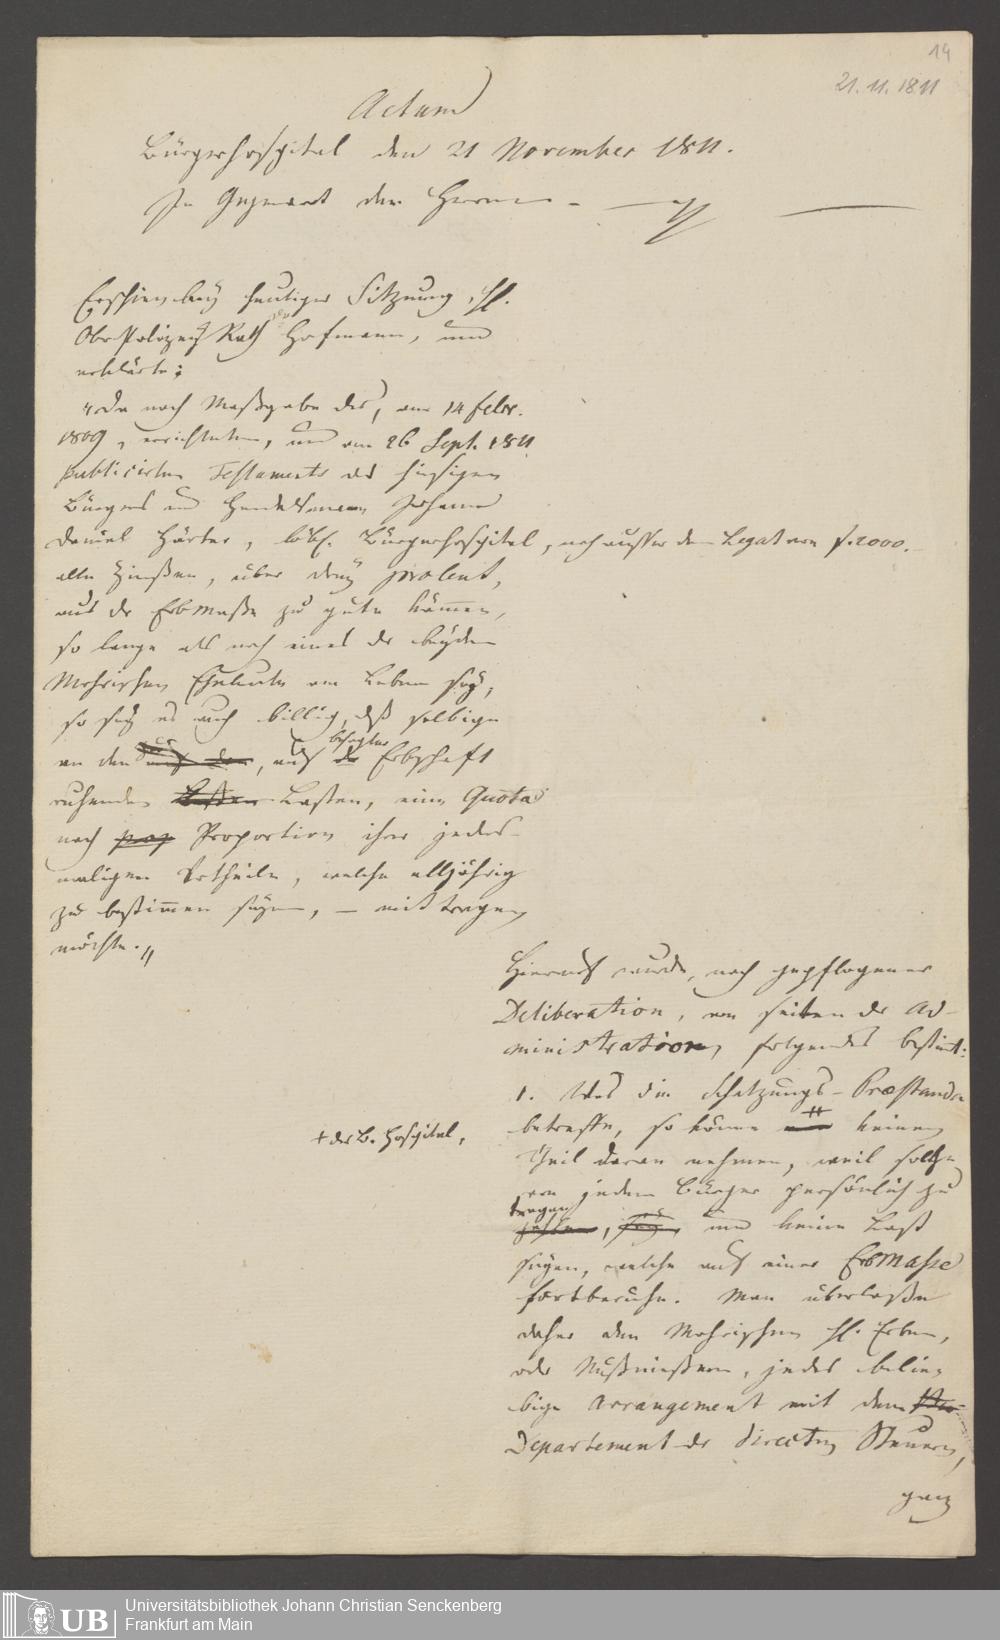 14
21. 11. 1811
Actum
Bürgerhospital den 21 November 1811.
In Gegenwart der Herren –
Erschien bey heutiger Sitzung, H.
OberPolizey Rath Hofmann, und
erklärte:
"Da nach Maßgabe des, am 14 Febr.
1809, errichteten, und am 26 Sept. 1811
publicirten Testaments des hiesigen
Bürgers und Handelsmann Johann
Daniel Härter, löbl. Bürgerhospital, noch ausser dem Legat von f. 2000.
alle Zinßen, über drey procent,
aus der Erbmaße zu gute kämen,
so lange als noch eines der beyden
Mohrischen Eheleute am Leben sey,
so sey es auch billig, daß selbige
an den, auf besagter Erbschaft
ruhenden Lasten, eine Quota
nach Proportion ihrer jedes-
maligen Antheile, welche alljährig
zu bestimmen seyen, – mit tragen
möchte."
Hierauf wurde, nach gepflogener
Deliberation, von seiten der Ad-
ministration, folgendes bestimt:
1. Was die Schatzungs-Præstanda
betreffe, so könne keinen
+ das B. Hospital,
Theil daran nehmen, weil solche
von jedem Bürger persönlich zu
tragen, und keine Last
seyen, welche auf einer Erbmasse
fortberuhe. Man überlaße
daher den Mohrischen H. Erben,
oder Nutznießern, jedes belie-
bige Arrangement mit dem
Departement der directen Steuern,
ganz
UB
Universitätsbibliothek Johann Christian Senckenberg
Frankfurt am Main